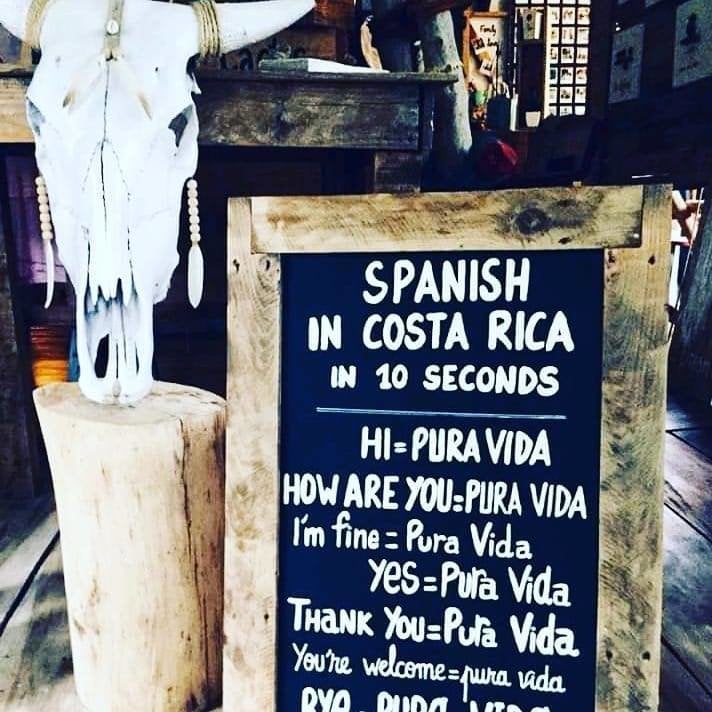 SPANISH
IN COSTA RICA
IN 10 SECONDS
HI=PURA VIDA
HOW ARE YOU=PURA VIDA
I'm fine = Pura Vida
YES=Pura Vida
THANK YOU=Pura Vida
You're welcome=pura vida
BYE=PURA VIDA